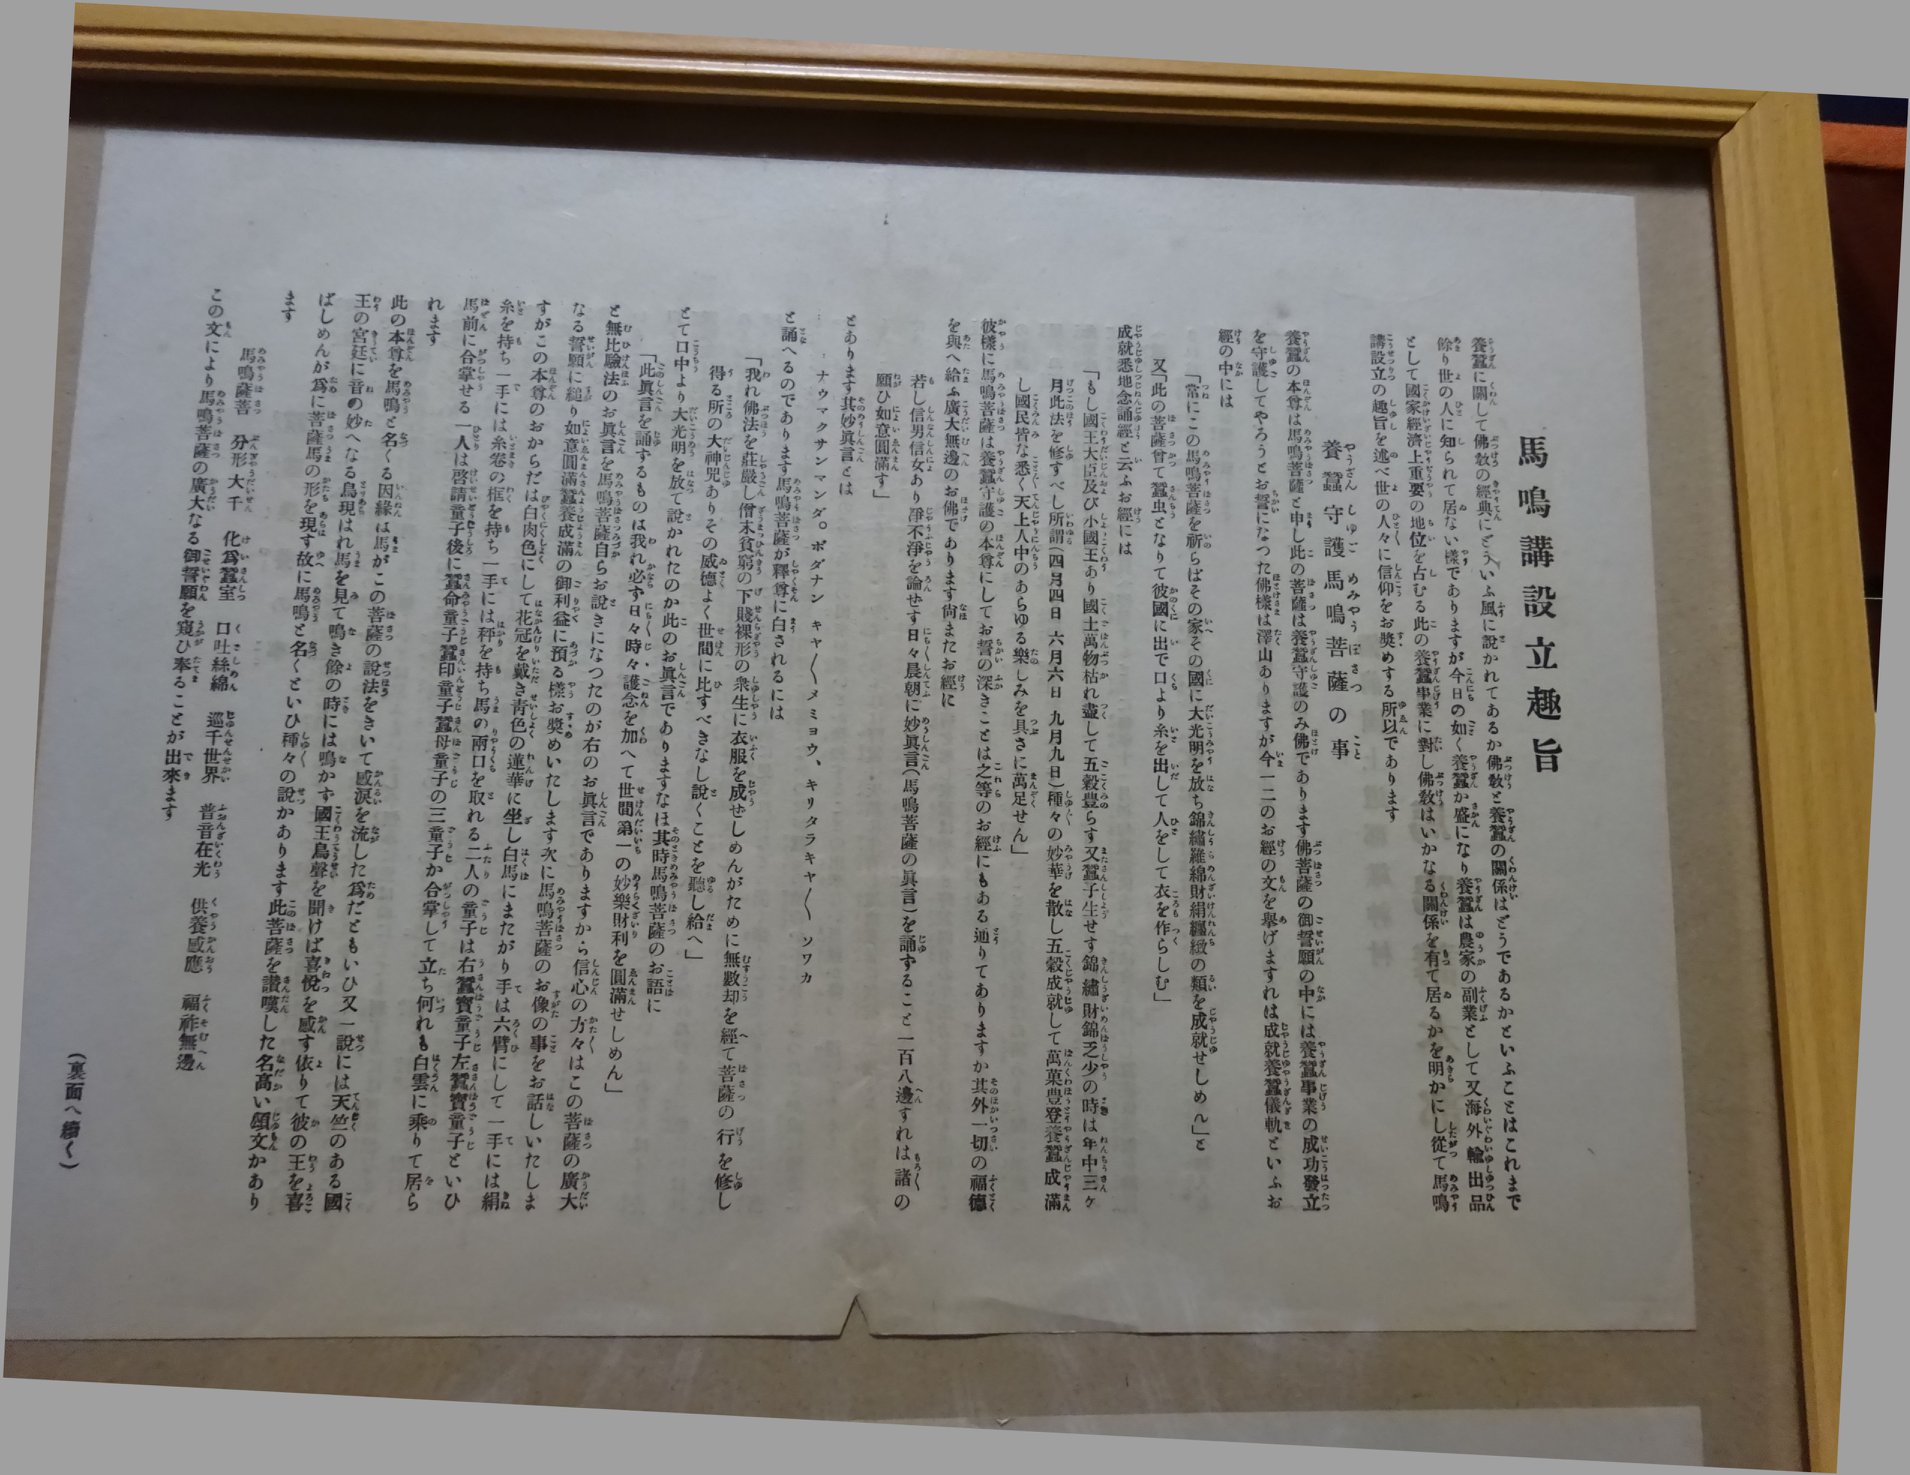 馬鳴講設立趣旨
養蠶に關して佛敎の經典にどういふ風に說かれてあるか佛敎と養蠶の關係はどうであるかといふことはこれまで
餘り世の人に知られて居ない樣でありますが今日の如く養蠶か盛になり養蠶は農家の副業として又海外輸出品
として國家經濟上重要の地位を占むる此の養蠶事業に對し佛敎はいかなる關係を有て居るかを明かにし從て馬鳴
講設立の趣旨を述べ世の人々に信仰をお奬めする所以であります
養蠶守護馬鳴菩薩の事
養蠶の本尊は馬鳴菩薩と申し此の菩薩は養蠶守護のみ佛であります佛菩薩の御誓願の中には養蠶事業の成功發立
を守護してやろうとお誓になつた佛樣は澤山ありますが今一二のお經の文を擧げますれは成就養蠶儀軌といふお
經の中には
「常にこの馬鳴菩薩を祈らばその家その國に大光明を放ち錦繡羅綿財絹纒緻の類を成就せしめん」と
又「此の菩薩曾て蠶虫となりて彼國に出で口より糸を出して人をして衣を作らしむ」
成就悉地念誦經と云ふお經には
「もし國王大臣及び小國王あり國土萬物枯れ盡して五穀豊らす又蠶子生せす錦繡財錦乏少の時は年中三ヶ
月此法を修すべし所謂(四月四日 六月六日 九月九日)種々の妙華を散し五穀成就して萬菓豊登養蠶成滿
し國民皆な悉く天上人中のあらゆる樂しみを具さに萬足せん」
彼樣に馬鳴菩薩は養蠶守護の本尊にしてお誓の深きことは之等のお經にもある通りてありますか其外一切の福德
を與へ給ふ廣大無邊のお佛であります尙またお經に
若し信男信女あり淨不淨を論せす日々晨朝に妙眞言(馬鳴菩薩の眞言)を誦すること一百八邊すれは諸の
願ひ如意圓滿す」
とあります其妙眞言とは
ナウマクサンマンダ。ボダナン キャ〱メミョウ、キリタラキャ〱 ソワカ
と誦へるのであります馬鳴菩薩が釋尊に白されるには
「我れ佛法を莊嚴し僧末貧窮の下賤裸形の衆生に衣服を成せしめんがために無數却を經て菩薩の行を修し
得る所の大神咒ありその威德よく世間に比すべきなし說くことを聽し給へ」
とて口中より大光明を放て說かれたのか此のお眞言でありますなほ其時馬鳴菩薩のお語に
「此眞言を誦するものは我れ必す日々時々護念を加へて世間第一の妙樂財利を圓滿せしめん」
と無比驗法のお眞言を馬鳴菩薩自らお說きになつたのが右のお眞言でありますから信心の方々はこの菩薩の廣大
なる誓願に縋り如意圓滿蠶養成滿の御利益に預る樣お奬めいたします次に馬鳴菩薩のお像の事をお話しいたしま
すがこの本尊のおからだは白肉色にして花冠を戴き靑色の蓮華に坐し白馬にまたがり手は六臂にして一手には絹
糸を持ち一手には糸卷の框を持ち一手には秤を持ち馬の兩口を取れる二人の童子は右蠶實童子左蠶寳童子といひ
馬前に合掌せる一人は啓請童子後に蠶命童子蠶印童子蠶母童子の三童子か合掌して立ち何れも白雲に乘りて居ら
れます
此の本尊を馬鳴と名くる因緣は馬がこの菩薩の說法をきいて感淚を流した爲だともいひ又一說には天竺のある國
王の宮廷に音の妙へなる鳥現はれ馬を見て鳴き餘の時には鳴かす國王鳥聲を聞けば喜悅を感す依りて彼の王を喜
ばしめんが爲に菩薩馬の形を現す故に馬鳴と名くといひ種々の說かあります此菩薩を讃嘆した名高い頌文かあり
ます
馬鳴薩菩 分形大千 化爲蠶室 口吐絲綿 巡千世界 普音在光 供養感應 福祚無邊
この文により馬鳴菩薩の廣大なる御誓願を窺ひ奉ることが出來ます
(裏面へ續く)